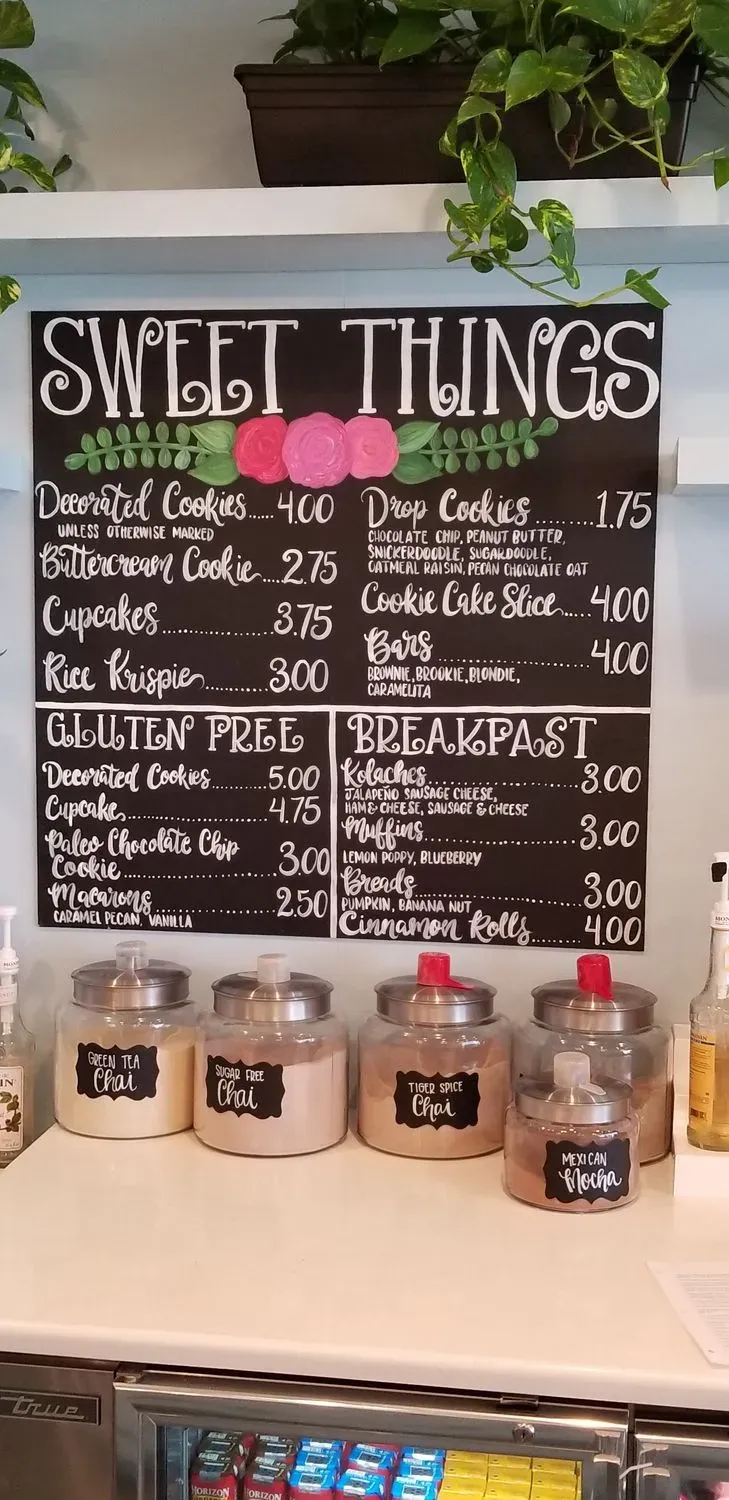 SWEET THINGS
Decorated Cookies.....4.00
UNLESS OTHERWISE MARKED
Buttercream Cookie....2.75
Cupcakes....................3.75
Rice Krispie...........3.00
Drop Cookies .........1.75
CHOCOLATE CHIP, PEANUT BUTTER,
SNICKERDOODLE, SUGARDOODLE,
OATMEAL RAISIN, PECAN CHOCOLATE OAT
Cookie Cake Slice.....4.00
Bars......................4.00
BROWNIE, BROOKIE, BLONDIE,
CARAMELITA
GLUTEN FREE
Decorated Cookies..........5.00
Cupcake........................4.75
Paleo Chocolate Chip
Cookie.....................3.00
Macarons..................2.50
CARAMEL PECAN, VANILLA
BREAKFAST
Kolaches.........................3.00
JALAPEÑO SAUSAGE CHEESE,
HAM & CHEESE, SAUSAGE & CHEESE
Muffins...........................3.00
LEMON POPPY, BLUEBERRY
Breads............................3.00
PUMPKIN, BANANA NUT
Cinnamon Rolls..........4.00
GREEN TEA
Chai
SUGAR FREE
Chai
TIGER SPICE
Chai
MEXICAN
Mocha
true
HORIZON
HORIZON